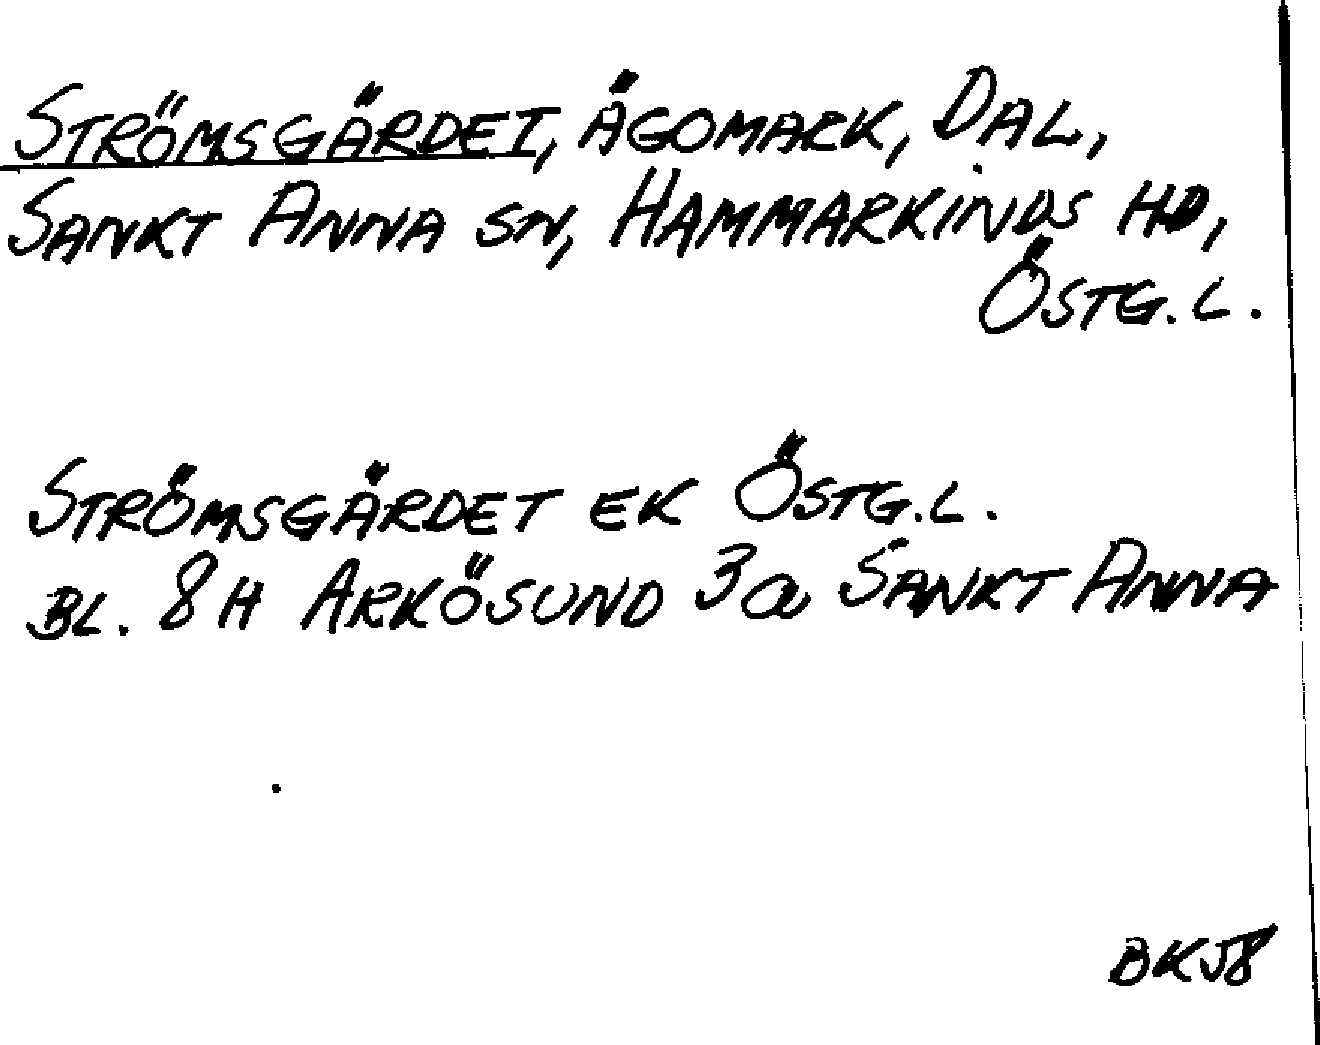 STRÖMSGÄRDET, ÄGOMARK, DAL,
SANKT ANNA SN, HAMMARKINDS HD,
ÖSTG.L.
STRÖMSGÄRDET EK ÖSTG.L.
BL. 8H ARKÖSUND 3a SANKT ANNA
BK58